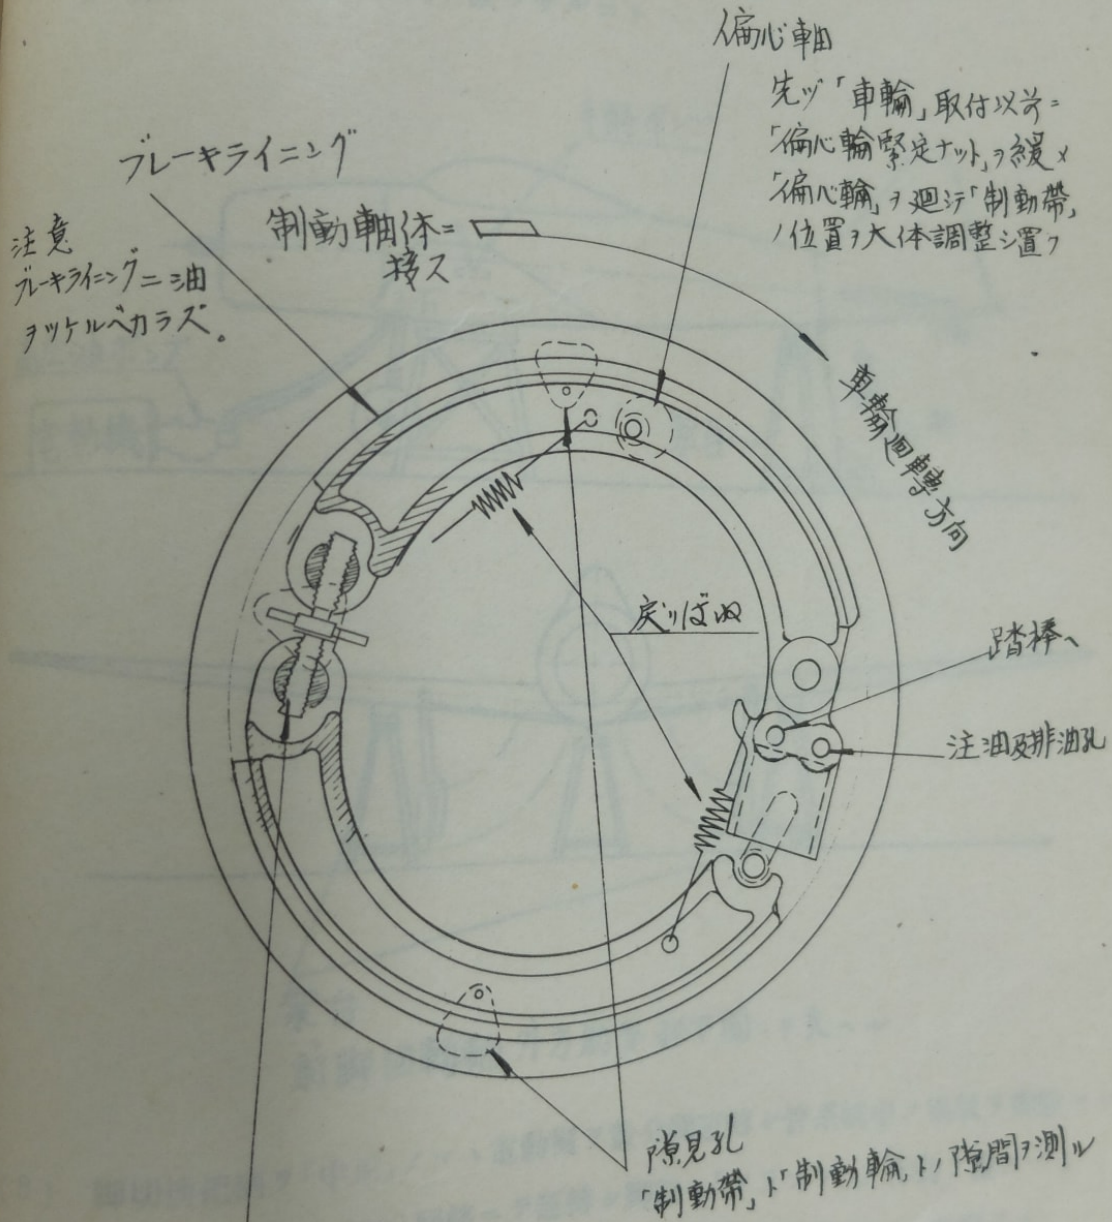 偏心軸
先ヅ「車輪」取付以前ニ
「偏心輪緊定ナット」ヲ緩メ
「偏心輪」ヲ廻シテ「制動帶」
ノ位置ヲ大体調整シ置ク
ブレーキライニング
注意
ブレーキライニングニ油
ヲツケルベカラズ。
制動軸体ニ
接ス
車輪廻轉方向
戻りばぬ
踏棒ヘ
注油及排油孔
隙見孔
「制動帶」ト「制動輪」トノ隙間ヲ測ル